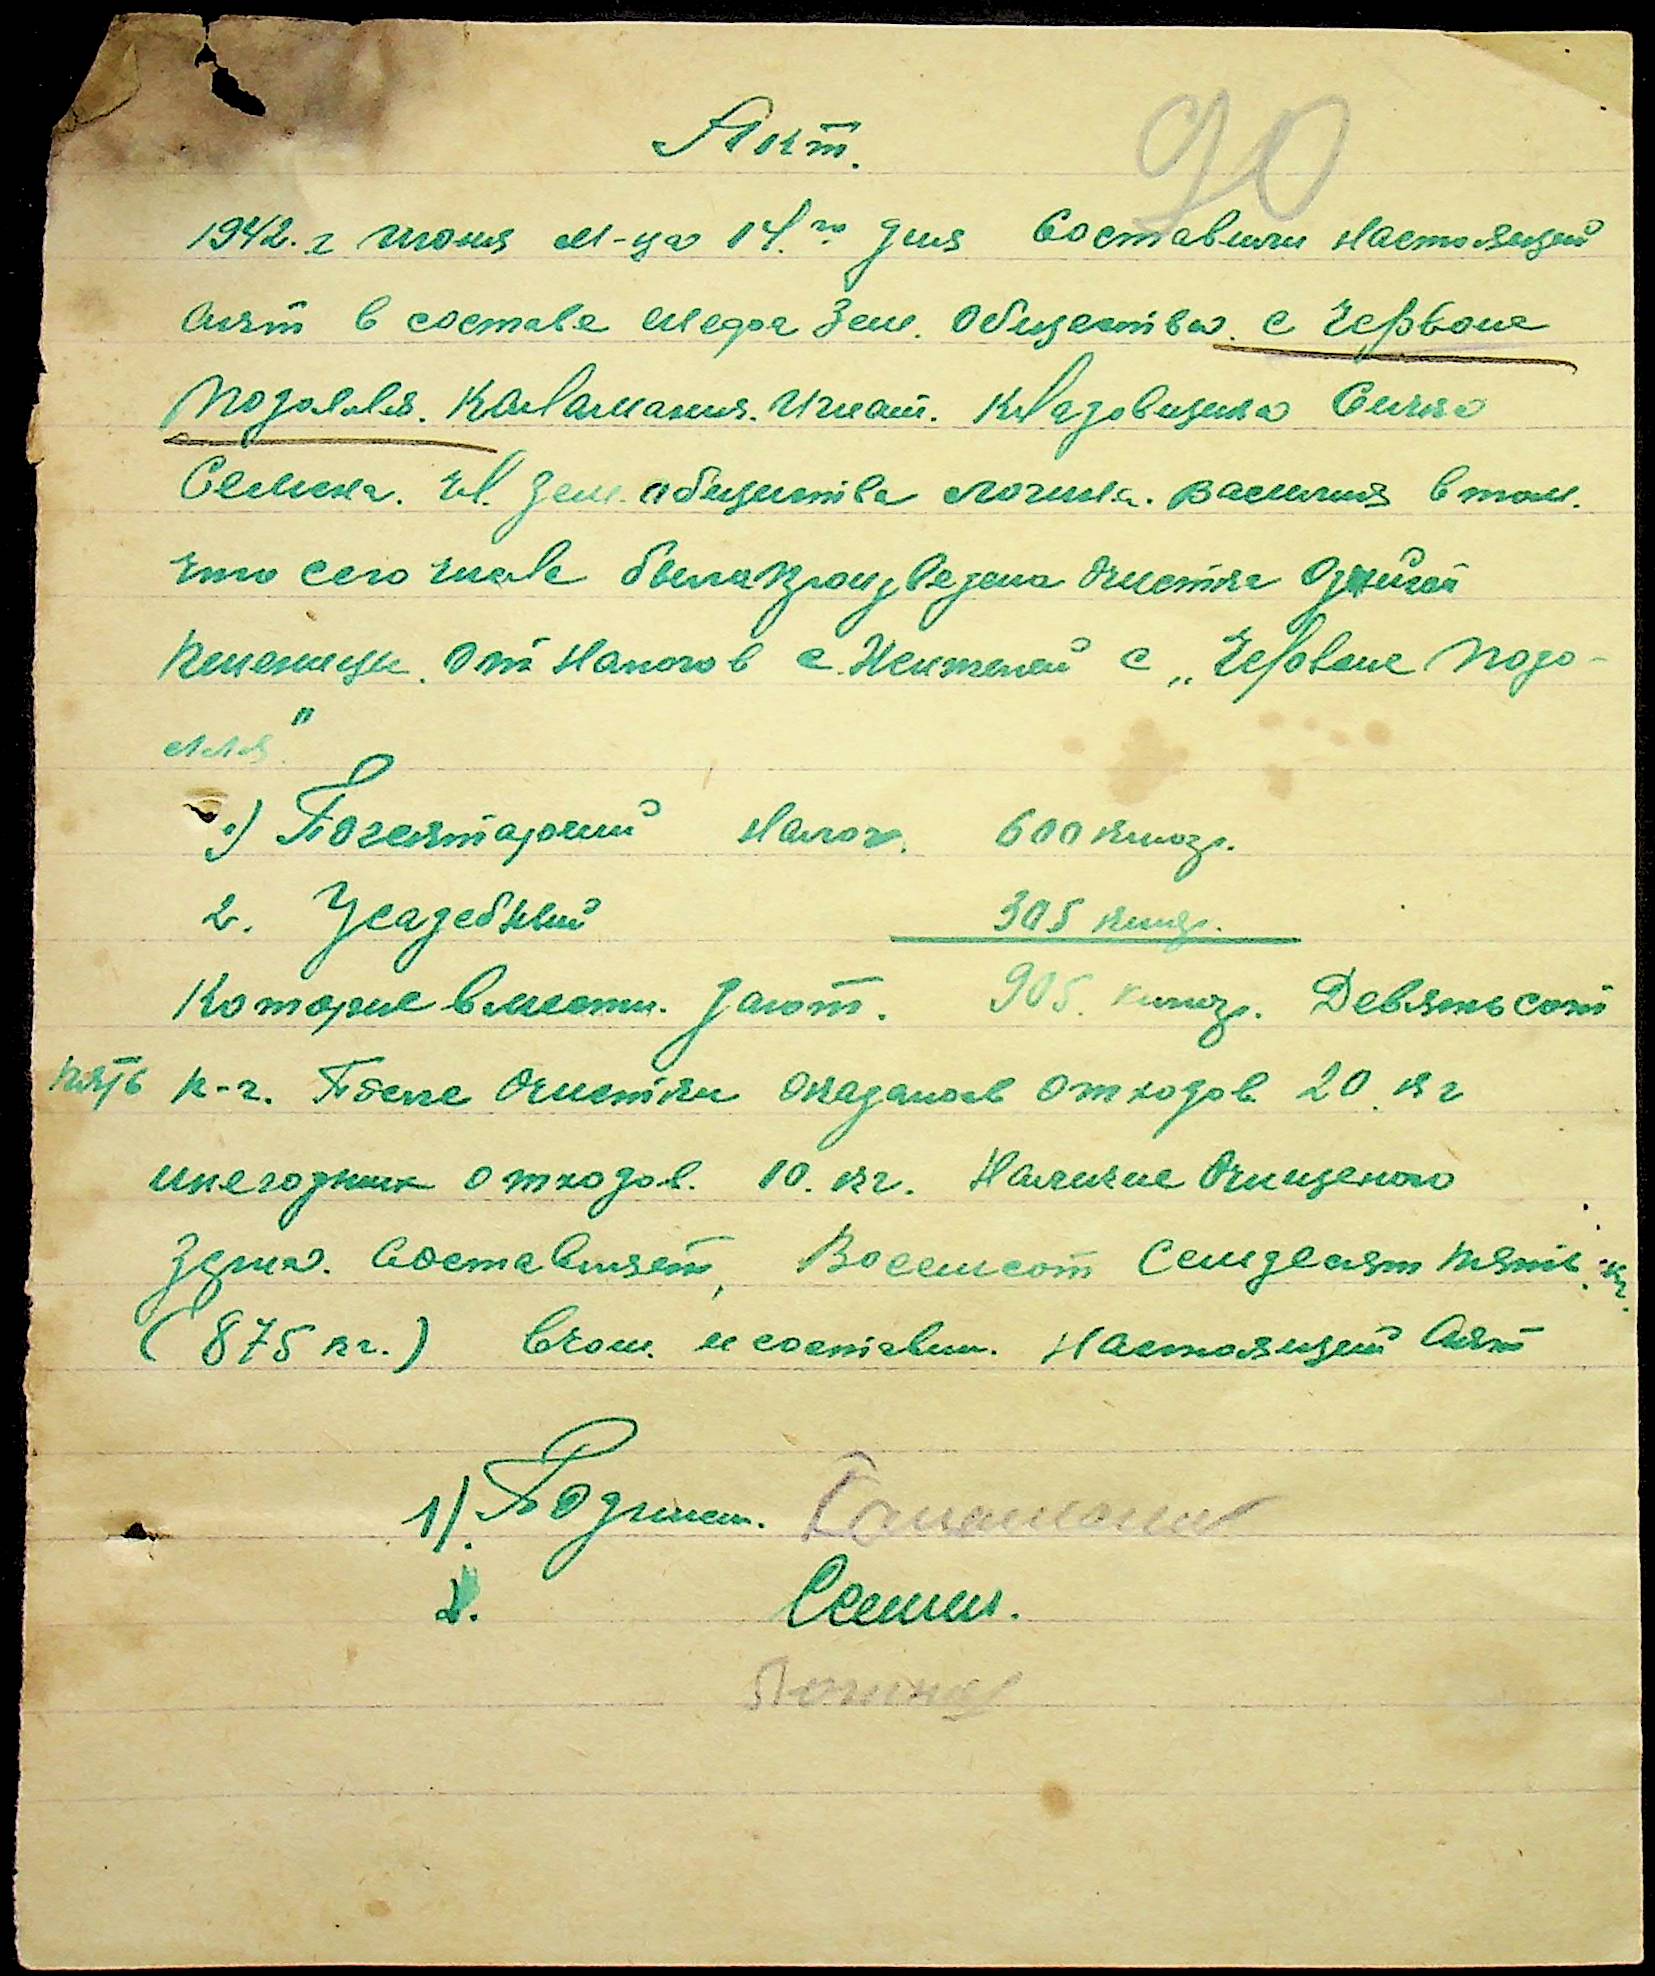 Акт.
90
1942. г Июня м-ца 14.го дня Составили настоящий
акт в составе Зем. Общества. с Червоне
Подолля. Каламания. Игнат. Кладовщика
Семена. Чл. Зем. общества Логина. Василия в том.
что сего числа была произведена очистка Озимой
Пшеницы. от налогов с Жителей с „Червоне Подо-
лля"
1) Погектарний Налог. 600 килогр.
2. Усадебный 305 килогр.
Которие вмести. дают. 905. килогр. Девяньсот
пять к-г. После Очистки оказалось отходов. 20. кг
инегодних отходов. 10. кг. Наличие Очищеного
Зерна. Составляет, Восемсот Семдесят пять. кг.
(875 кг.) вчом. и состави. настоящий Акт
1). Подписи. Каламания
2. Семин.
Логина